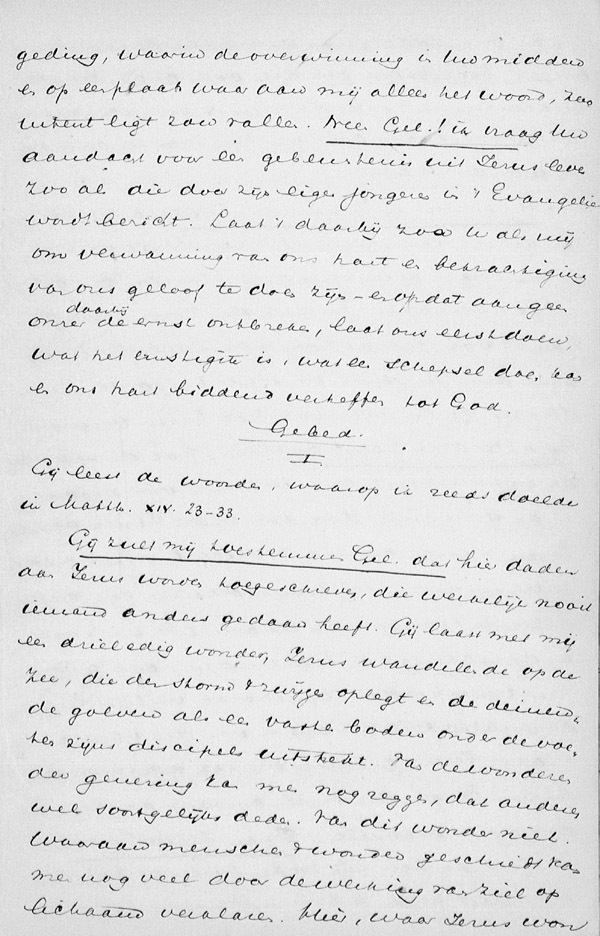 geding, waarin de overwinning in Uw midden
en op een plaats waar aan mij alleen het woord, zeer
licht zou vallen. Neen Gel.! ik vraag Uw
aandacht voor een gebeurtenis uit Jezus leven
zooals die door zijn eigen jongeren in 't Evangelie
wordt bericht. Laat 't daarbij zoo U als mij
om verwarming van ons hart en bekrachtiging
van ons geloof te doen zijn – en opdat aan geen
onzer daarbij de ernst ontbreke, laat ons eerst doen,
wat het ernstigste is, wat een schepsel doen kan
en ons hart biddend verheffen tot God.
Gebed.
I
Gij leest de woorden, waarop ik reeds doelde
in Matth. XIV. 23-33.
Gij zult mij toestemmen Gel. dat hier daden
aan Jezus worden toegeschreven, die werkelijk nooit
iemand anders gedaan heeft. Gij laast met mij
een drieledig wonder, Jezus wandelende op de
zee, die den storm 't zwijgen oplegt en de deinen-
de golven als een vasten bodem onder de voe-
ten zijns discipels uitstrekt. Van de wonderen
der genezing kan men nog zeggen, dat anderen
wel soortgelijks deden. Van dit wonder niet.
Waar aan menschen 't wonder geschiedt kan
men nog veel door de werking van ziel op
lichaam verklaren. Hier, waar Jezus won